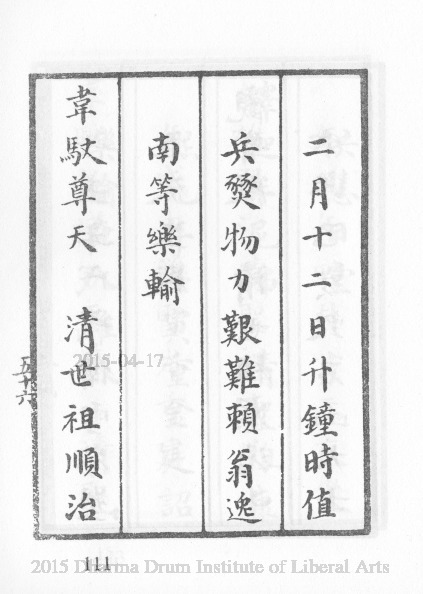 二月十二日升鐘時值
兵燹物力艱難賴翁逸
南等樂輸
韋馱尊天　清世祖順治
五十六
2015-04-17
111
2015 Dharma Drum Institute of Liberal Arts